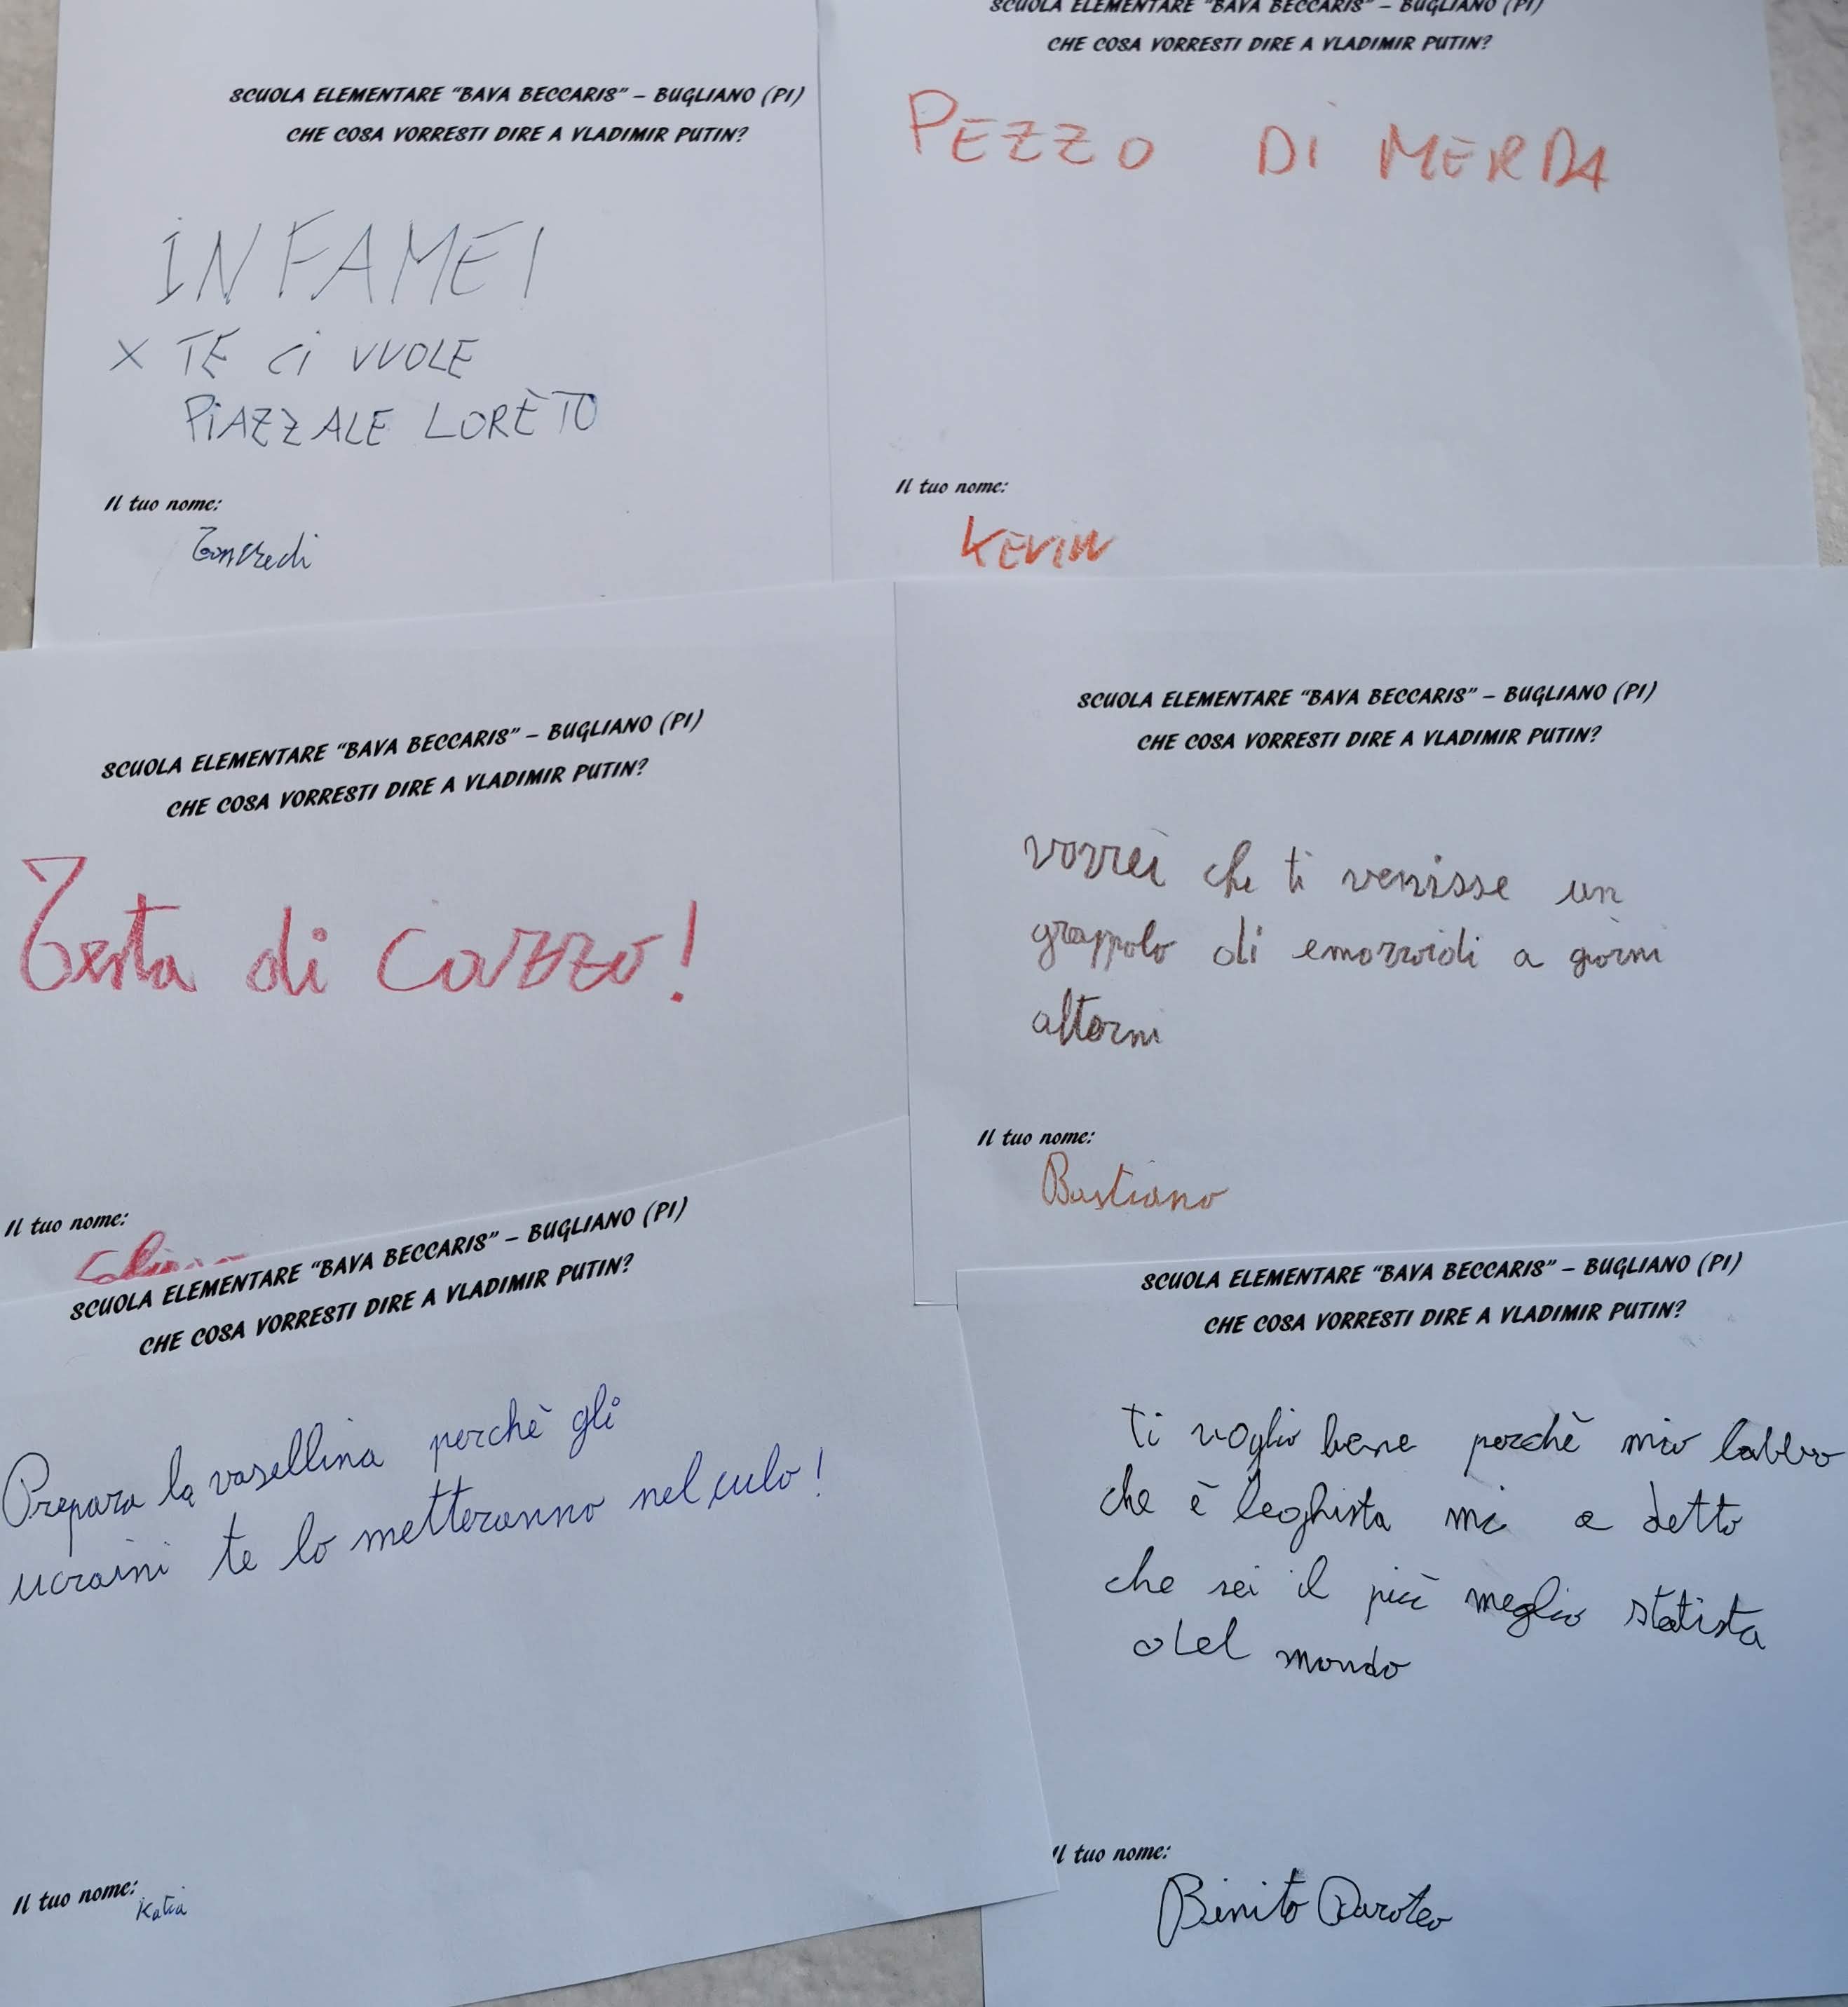 SCUOLA ELEMENTARE "BAVA BECCARIS" – BUGLIANO (PI)
CHE COSA VORRESTI DIRE A VLADIMIR PUTIN?
INFAME!
X TE CI VUOLE
PIAZZALE LORÈTO
Il tuo nome:
Tancredi
SCUOLA ELEMENTARE "BAVA BECCARIS" – BUGLIANO (PI)
CHE COSA VORRESTI DIRE A VLADIMIR PUTIN?
PEZZO DI MERDA
Il tuo nome:
KEVIN
SCUOLA ELEMENTARE "BAVA BECCARIS" – BUGLIANO (PI)
CHE COSA VORRESTI DIRE A VLADIMIR PUTIN?
Testa di cazzo!
Il tuo nome:
SCUOLA ELEMENTARE "BAVA BECCARIS" – BUGLIANO (PI)
CHE COSA VORRESTI DIRE A VLADIMIR PUTIN?
vorrei che ti venisse un
grappolo di emorroidi a giorni
alterni
Il tuo nome:
Bastiano
SCUOLA ELEMENTARE "BAVA BECCARIS" – BUGLIANO (PI)
CHE COSA VORRESTI DIRE A VLADIMIR PUTIN?
Prepara la vasellina perchè gli
ucraini te lo metteranno nel culo!
Il tuo nome:
Katia
SCUOLA ELEMENTARE "BAVA BECCARIS" – BUGLIANO (PI)
CHE COSA VORRESTI DIRE A VLADIMIR PUTIN?
ti voglio bene perchè mio babbo
che è leghista mi a detto
che sei il più meglio statista
del mondo
Il tuo nome:
Binito